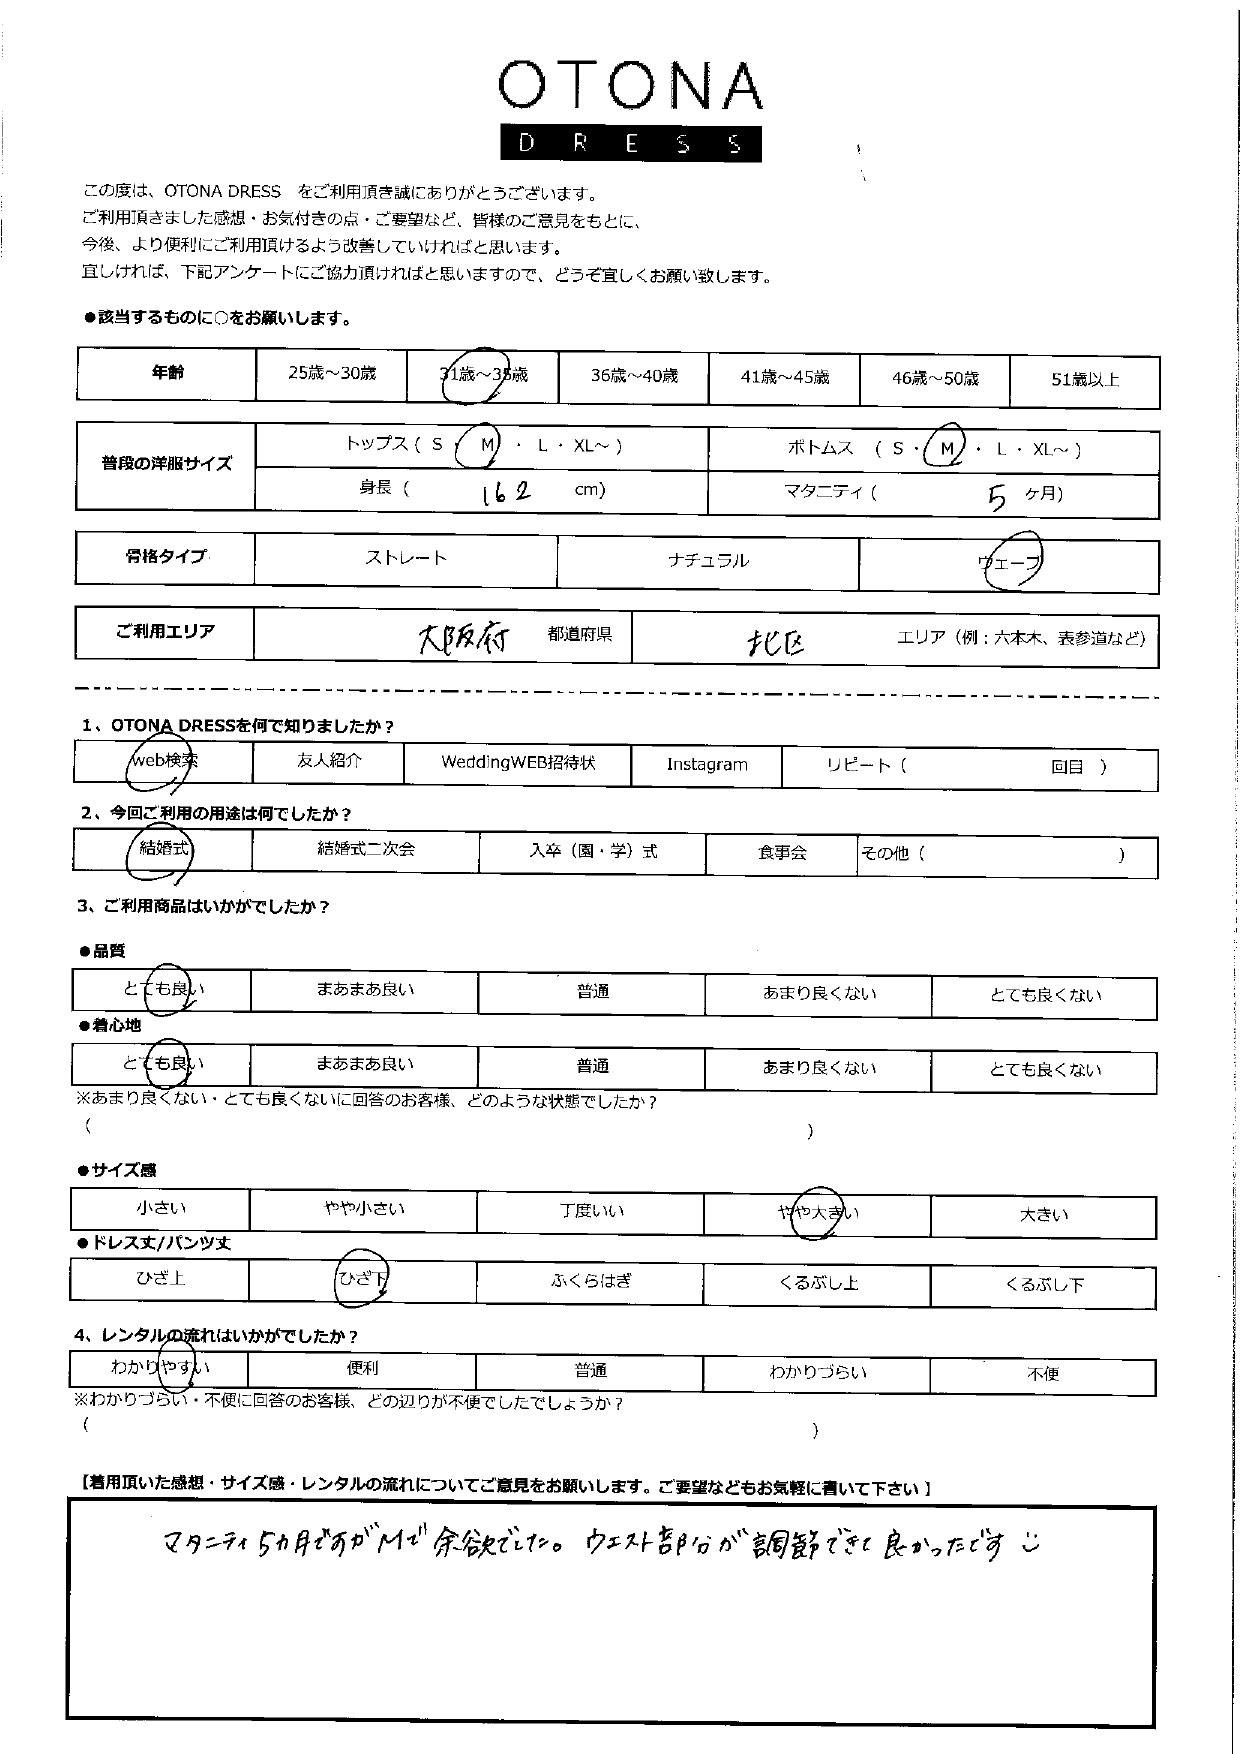 OTONA
DRESS
この度は、OTONA DRESS　をご利用頂き誠にありがとうございます。
ご利用頂きました感想・お気付きの点・ご要望など、皆様のご意見をもとに、
今後、より便利にご利用頂けるよう改善していければと思います。
宜しければ、下記アンケートにご協力頂ければと思いますので、どうぞ宜しくお願い致します。
●該当するものに○をお願いします。
年齢 25歳～30歳 31歳～35歳 36歳～40歳 41歳～45歳 46歳～50歳 51歳以上
普段の洋服サイズ トップス（ S ・ M ・ L ・ XL～ ） ボトムス （ S ・ M ・ L ・ XL～ ）
身長（ 162 cm） マタニティ（ 5 ケ月）
骨格タイプ ストレート ナチュラル ウェーブ
ご利用エリア 大阪府 都道府県 北区 エリア（例：六本木、表参道など）
1、OTONA DRESSを何で知りましたか？
web検索 友人紹介 WeddingWEB招待状 Instagram リピート（ 回目 ）
2、今回ご利用の用途は何でしたか？
結婚式 結婚式二次会 入卒（園・学）式 食事会 その他（ ）
3、ご利用商品はいかがでしたか？
●品質
とても良い まあまあ良い 普通 あまり良くない とても良くない
●着心地
とても良い まあまあ良い 普通 あまり良くない とても良くない
※あまり良くない・とても良くないに回答のお客様、どのような状態でしたか？
（ ）
●サイズ感
小さい やや小さい 丁度いい やや大きい 大きい
●ドレス丈/パンツ丈
ひざ上 ひざ下 ふくらはぎ くるぶし上 くるぶし下
4、レンタルの流れはいかがでしたか？
わかりやすい 便利 普通 わかりづらい 不便
※わかりづらい・不便に回答のお客様、どの辺りが不便でしたでしょうか？
（ ）
【着用頂いた感想・サイズ感・レンタルの流れについてご意見をお願いします。ご要望などもお気軽に書いて下さい】
マタニティ5カ月ですがMで余欲でした。ウエスト部分が調節できて良かったです